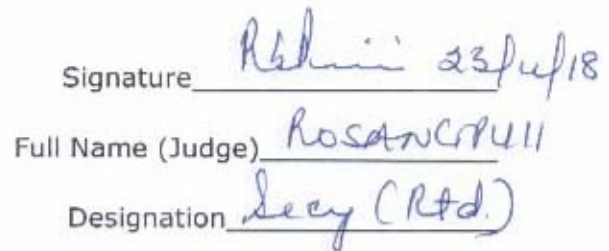 Signature 23/4/18
Full Name (Judge) ROSANGPUII
Designation Secy (Rtd.)